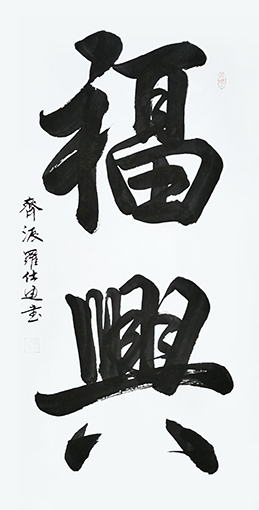 福興
齊派羅仕迪書